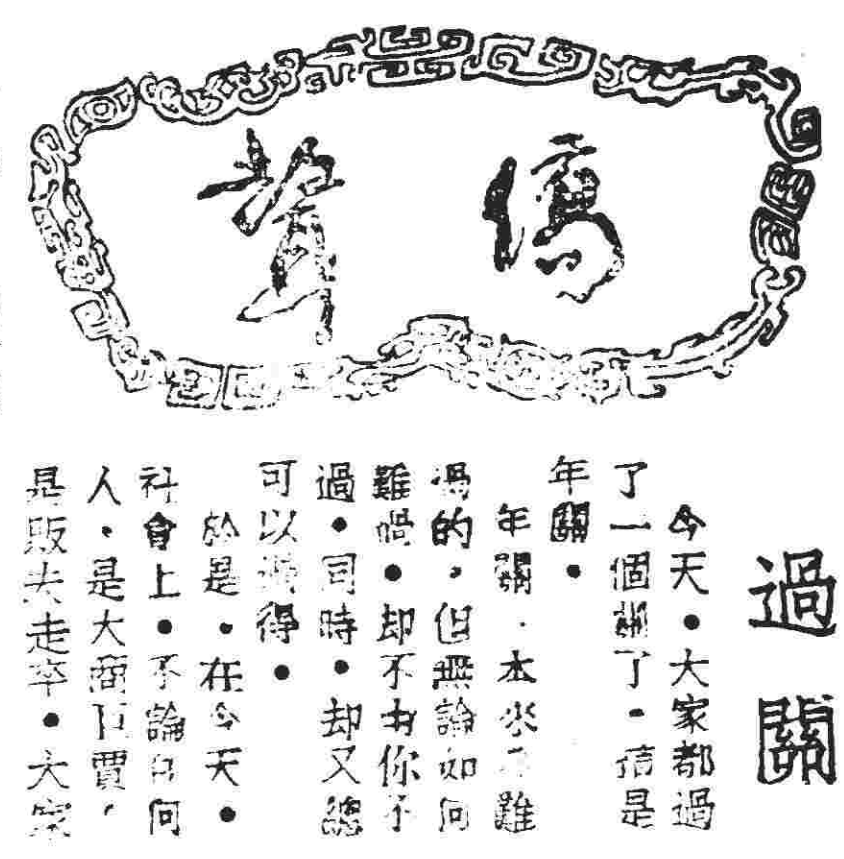 僑聲
過關
今天●大家都過
了一個關了・這是
年關●
年關・本來是難
過的・但無論如何
難過●却不由你不
過●同時●却又總
可以得●
於是・在今天●
社會上●不論任何
人・是大商巨賈・
是販夫走卒●大家